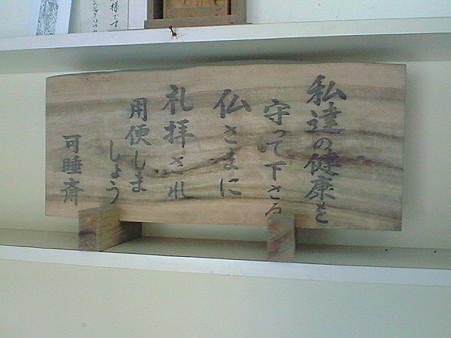 私達の健康を
守って下さる
仏さまに
礼拝され
用便しま
しょう
可睡斎